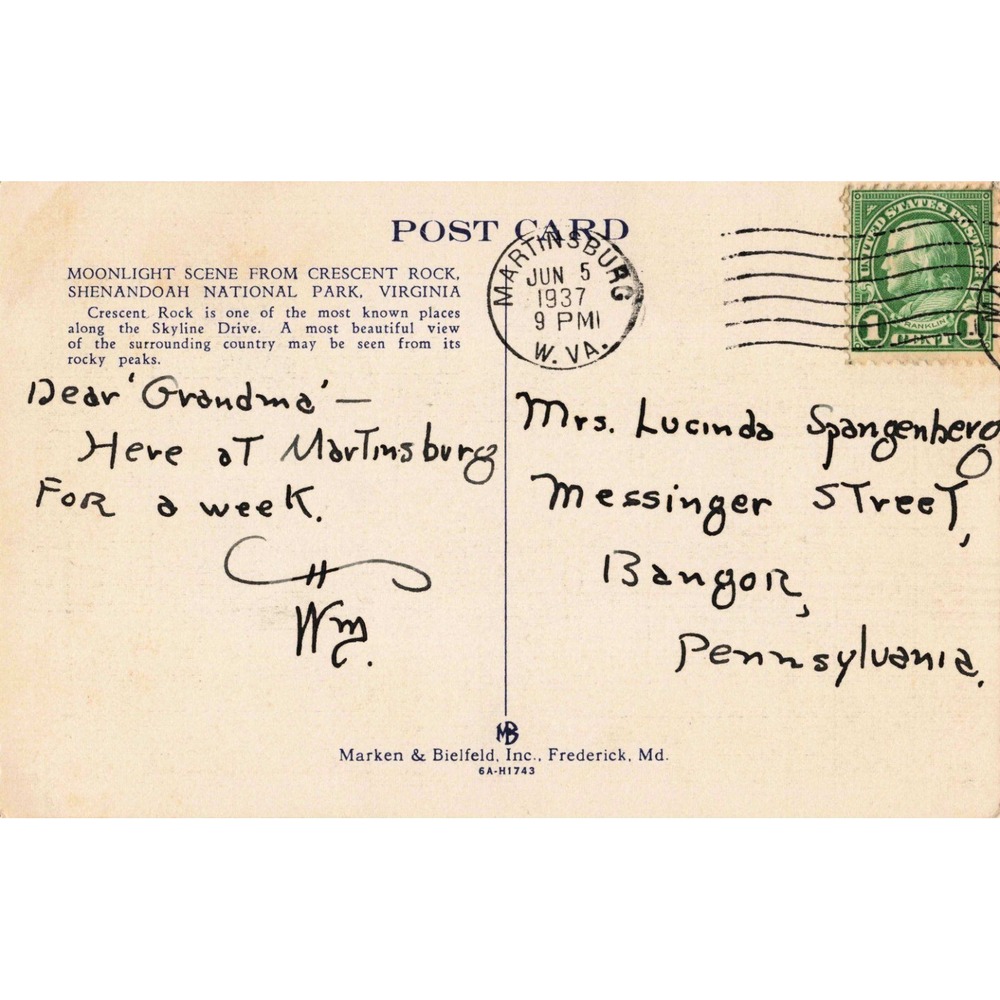 POST CARD
MOONLIGHT SCENE FROM CRESCENT ROCK,
SHENANDOAH NATIONAL PARK, VIRGINIA
Crescent Rock is one of the most known places
along the Skyline Drive. A most beautiful view
of the surrounding country may be seen from its
rocky peaks.
MARTINSBURG
JUN 5
1937
9 PM
W. VA.
UNITED STATES POSTAGE
FRANKLIN
1 1
Dear 'Grandma' —
Here at Martinsburg
For a week.
Wm.
Mrs. Lucinda Spangenberg
Messinger Street,
Bangor,
Pennsylvania.
MB
Marken & Bielfeld, Inc., Frederick, Md.
6A-H1743